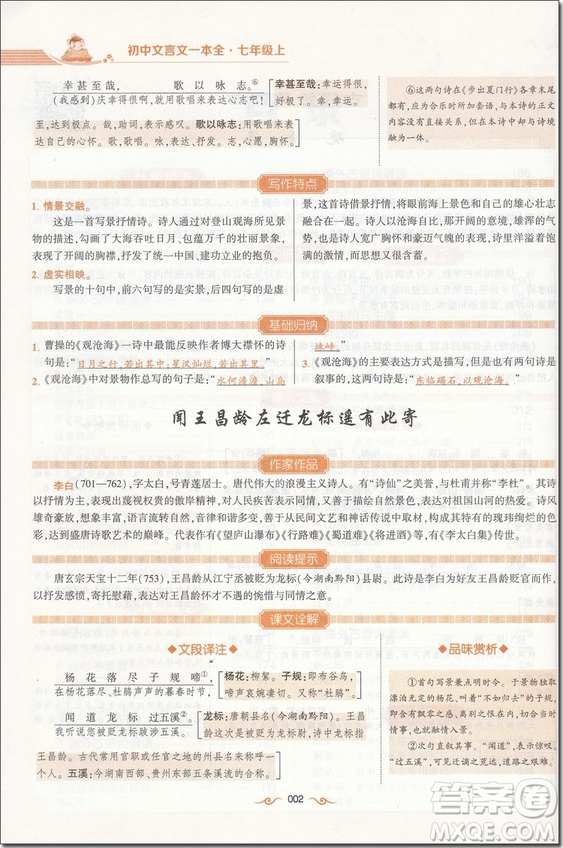 初中文言文一本全·七年级上
幸甚至哉， 歌以咏志。⑥
(我感到)庆幸得很啊，就用歌唱来表达心志吧！
幸甚至哉：幸运得很，
好极了。幸，幸运。
甚，很。哉，助词，表示感叹。歌以咏志：
歌，歌唱。咏，表达、抒发。志，心愿，胸怀。
⑥这两句诗在《步出夏门行》各章末尾
都有，应为合乐时所加套语，与本诗的正文
内容没有直接关系，但在本诗中却与诗境
融为一体。
写作特点
1. 情景交融。
这是一首写景抒情诗。诗人通过对登山观海所见景
物的描绘，勾画了大海吞吐日月、包蕴万千的壮丽景象，
表现了开阔的胸襟，抒发了统一中国、建功立业的抱负。
2. 虚实相映。
写景的十句中，前六句写的是实景，后四句写的是虚
景，这首诗借景抒情，将眼前海上景色和自己的雄心壮志
融合在一起。与诗人以沧海自比，那开阔的意境，雄浑的气
势，也是诗人宽广胸怀和豪迈气魄的表现，诗里洋溢着饱
满的激情，而且耐人寻味。
基础归纳
1. 曹操的《观沧海》一诗中最能反映作者博大襟怀的诗
句是：“日月之行，若出其中；星汉灿烂，若出其里。”
2. 《观沧海》中对景物作总写的句子是：“水何澹澹，山岛
竦峙。”
3. 《观沧海》的主要表达方式是描写，但是也有两句诗是
叙事的，这两句诗是：“东临碣石，以观沧海。”
闻王昌龄左迁龙标遥有此寄
作家作品
李白(701—762)，字太白，号青莲居士。唐代伟大的浪漫主义诗人。有“诗仙”之美誉，与杜甫并称“李杜”。其诗
以抒情为主，表现出蔑视权贵的傲岸精神，对人民疾苦表示同情，又善于描绘自然景色，表达对祖国山河的热爱。诗风
雄奇豪放，想象丰富，语言流转自然，音律和谐多变，善于从民间文艺和神话传说中吸取素材，构成其特有的瑰玮绚烂的色
彩，达到盛唐诗歌艺术的巅峰。代表作有《望庐山瀑布》《行路难》《蜀道难》《将进酒》等，有《李太白集》传世。
阅读提示
唐玄宗天宝十二年(753)，王昌龄从江宁丞被贬为龙标(今湖南黔阳)县尉。此诗是李白为好友王昌龄贬官而作，
以抒发感愤，寄托慰藉，表达对王昌龄怀才不遇的惋惜与同情之意。
课文诠解
文段译注
杨花落尽子规啼①，
在杨花落完、杜鹃声声的暮春时节，
杨花：柳絮。子规：即布谷鸟，
啼声哀婉凄切。一切景语皆情语。
闻道龙标过五溪②。
我听说龙标尉龄跋涉五溪。
龙标：唐朝县名(今湖南黔阳)，
诗中指
王昌龄。古代常用官职或任官的州县名来称呼一
个人。五溪：今湖南西部、贵州东部五条溪流的合称。
品味赏析
①首句写景兼点明时令。于景物独取
漂泊无定的杨花、叫着“不如归去”的子规，
含有飘零之感、离别之恨在内，切合当时
情事，也就融情入景。
②次句直叙其事。“闻道”，表示惊叹，
“过五溪”，可见迁谪之荒远，道路之艰难。
002
答案圈
MXQE.COM